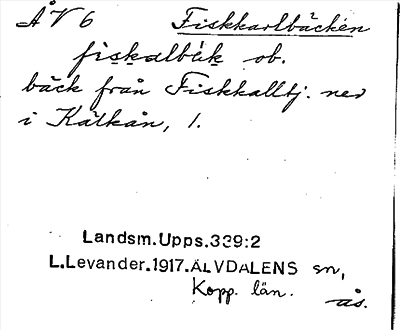 ÅV 6 Fiskkarlbäcken
fiskalbäk ob.
bäck från Fiskkalltj. ned
i Kätkån, 1.
Landsm.Upps.339:2
L.Levander.1917.ÄLVDALENS sn,
Kopp. län.
ås.